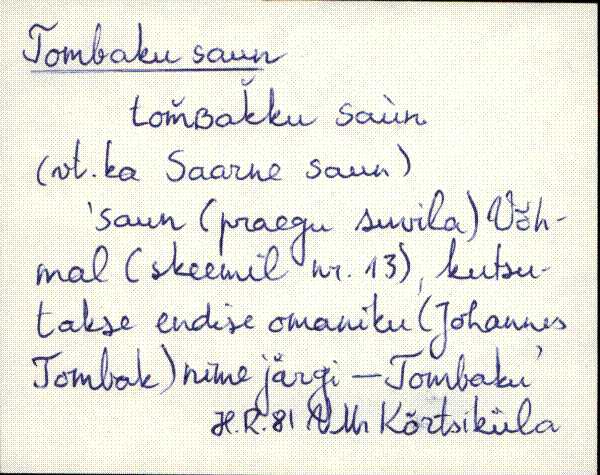 Tombaku saun
tom̆ʙak̆ku saùn
(vt. ka Saarne saun)
'saun (praegu suvila) Võh-
mal (skeemil nr. 13), kutsu-
takse endise omaniku (Johannes
Tombak) nime järgi — Tombaku'
H.R. 81 Kõrtsiküla